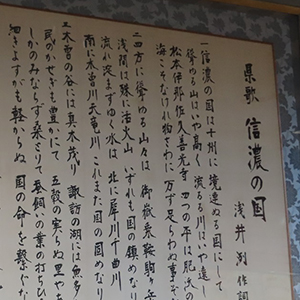 県歌 信濃の国
浅井洌作詞
一 信濃の国は十州に 境連ぬる国にして
聳ゆる山はいや高く 流るる川はいや遠し
松本伊那佐久善光寺 四つの平は肥沃の
海こそなけれ物さわに 万ず足らわぬ事
二 四方に聳ゆる山々は 御嶽乗鞍駒ヶ岳
浅間は殊に活火山 いずれも国の鎮めなり
流れ淀まずゆく水は 北に犀川千曲川
南に木曽川天竜川 これまた国の固めなり
三 木曽の谷には真木茂り 諏訪の湖には魚多
民のかせぎも豊かにて 五穀の実らぬ里や
しかのみならず桑とりて 蚕飼いの業の打ちひ
細きよすがも軽からぬ 国の命を繋ぐな